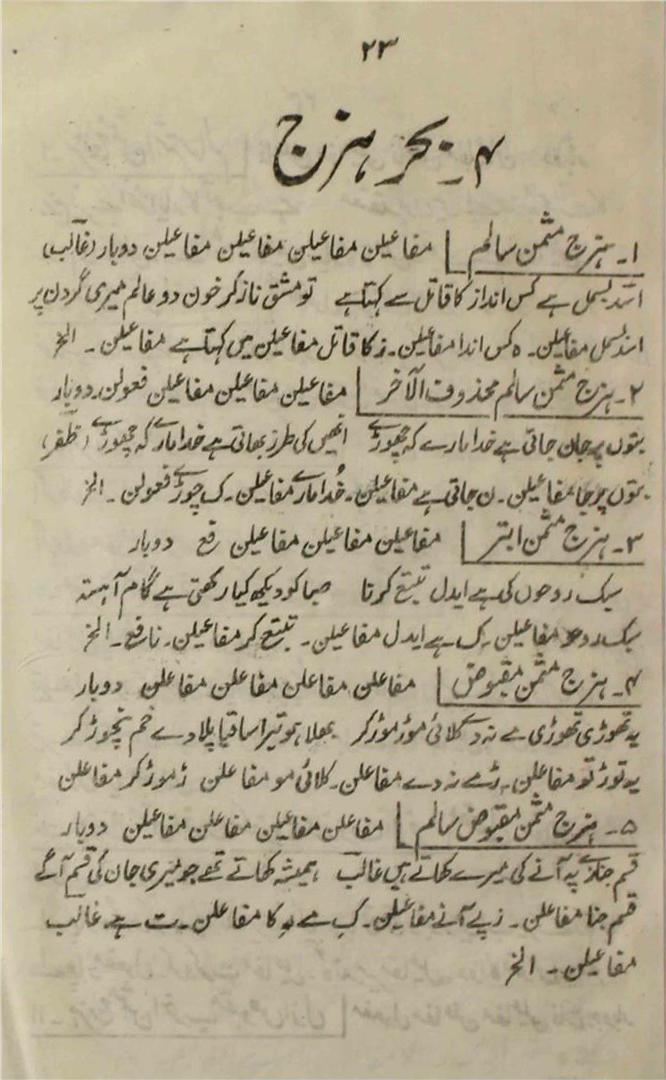 ۲۳
۴۔ بحر ہزج
۱۔ ہزج مثمن سالم مفاعیلن مفاعیلن مفاعیلن مفاعیلن دوبار (غالب)
اسد بسمل ہے کس انداز کا قاتل سے کہتا ہے تو مشق ناز کر خون دو عالم میری گردن پر
اسد بسمل مفاعیلن۔ ہ کس اندا مفاعیلن۔ ز کا قاتل مفاعیلن میں کہتا ہے مفاعیلن ۔ الخ
۲۔ ہزج مثمن سالم محذوف الآخر مفاعیلن مفاعیلن مفاعیلن فعولن۔ دوبار
بتوں پر جان جاتی ہے خدا مارے کہ چھوڑے انھیں کی طرز بھاتی ہے خدا مارے کہ چھوڑے (ظفر)
بتوں پر جا مفاعیلن۔ ن جاتی ہے مفاعیلن۔ خُدا مارے مفاعیلن۔ ک چوڑے فعولن۔ الخ
۳۔ ہزج مثمن ابتر مفاعیلن مفاعیلن مفاعیلن فع دوبار
سبک روحوں کی ہے ایدل تتبع کرنا صبا کو دیکھ کیا رکھتی ہے گام آہستہ
سبک روحو مفاعیلن۔ ک ہے ایدل مفاعیلن۔ تتبع کر مفاعیلن۔ نا فع۔ الخ
۴۔ ہزج مثمن مقبوض مفاعلن مفاعلن مفاعلن مفاعلن دوبار
یہ تھوڑی تھوڑی مے نہ دے کلائی موڑ موڑ کر بھلا ہو تیرا ساقیا پلا دے خم نچوڑ کر
یہ توڑ تو مفاعلن۔ ڑ مے نہ دے مفاعلن۔ کلائی مو مفاعلن ڑ موڑ کر مفاعلن
۵۔ ہزج مثمن مقبوض سالم مفاعلن مفاعیلن مفاعلن مفاعیلن دوبار
قسم جنازے پہ آنے کی میرے کھاتے ہیں غالب ہمیشہ کھاتے تھے جو میری جان کی قسم آگے
قسم جنا مفاعلن۔ زپے آنے مفاعیلن۔ ک مے کا مفاعلن۔ ت ہے غالب
مفاعیلن۔ الخ